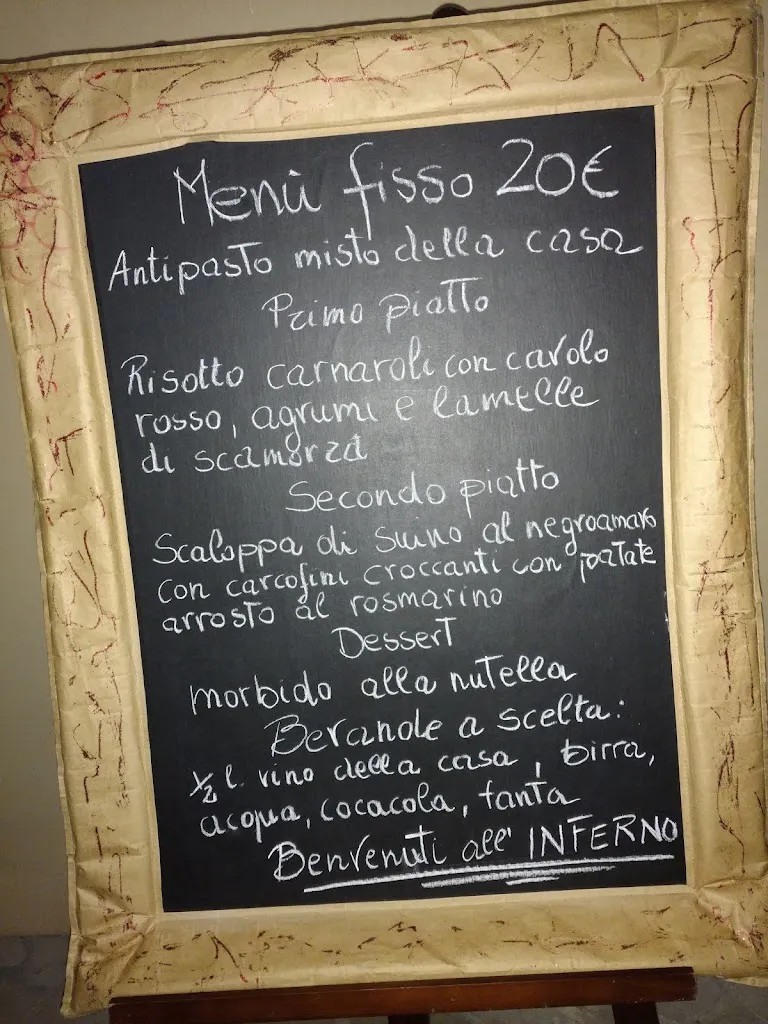 Menù fisso 20€
Antipasto misto della casa
Primo piatto
Risotto carnaroli con cavolo
rosso, agrumi e lamelle
di scamorza
Secondo piatto
Scaloppa di suino al negroamaro
con carcofini croccanti con patate
arrosto al rosmarino
Dessert
morbido alla nutella
Bevande a scelta:
½ l. vino della casa, birra,
acqua, cocacola, fanta
Benvenuti all' INFERNO